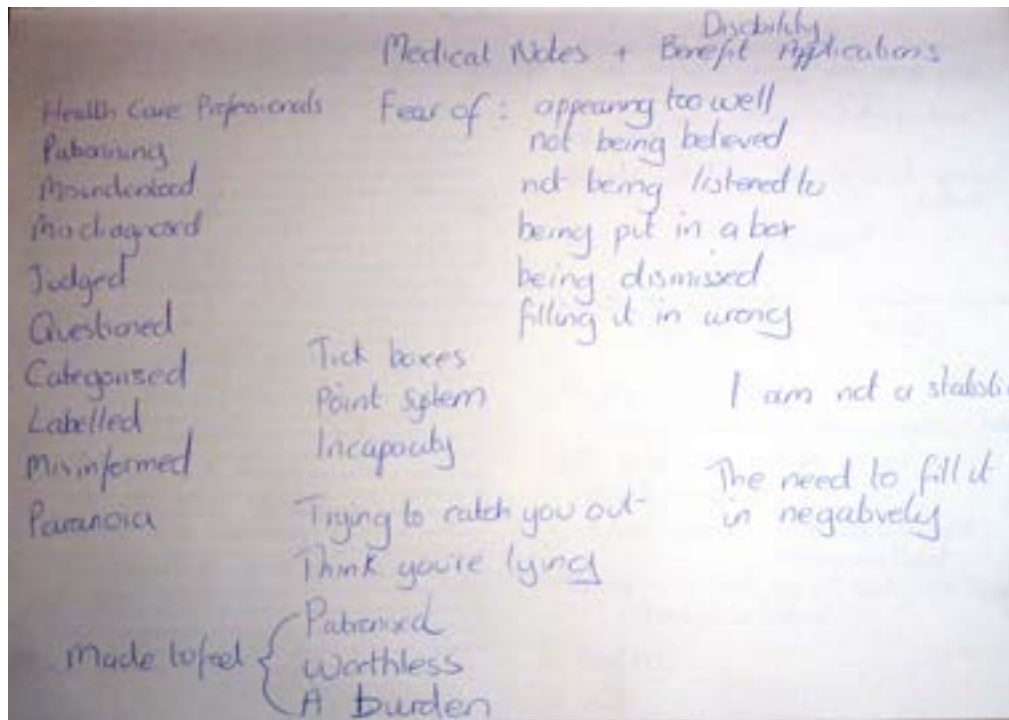 Disability
Medical Notes + Benefit Applications
Health Care Professionals
Patronising
Misunderstood
Misdiagnosed
Judged
Questioned
Categorised
Labelled
Misinformed
Paranoia
Fear of : appearing too well
not being believed
not being listened to
being put in a box
being dismissed
filling it in wrong
Tick boxes
Point System
Incapacity
Trying to catch you out
Think you're lying
I am not a statistic
The need to fill it
in negatively
Made to feel
Patronised
Worthless
A burden